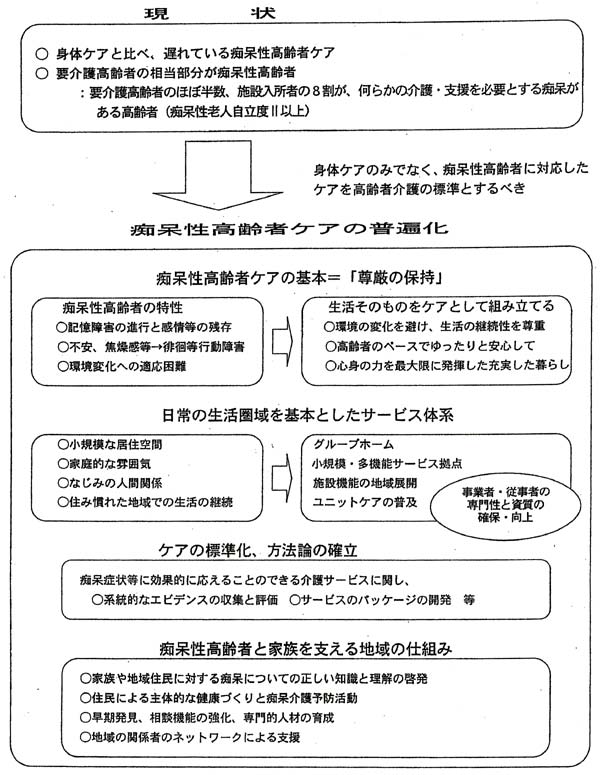 現状
○ 身体ケアと比べ、遅れている痴呆性高齢者ケア
○ 要介護高齢者の相当部分が痴呆性高齢者
：要介護高齢者のほぼ半数、施設入所者の８割が、何らかの介護・支援を必要とする痴呆が
ある高齢者（痴呆性老人自立度Ⅱ以上）
身体ケアのみでなく、痴呆性高齢者に対応した
ケアを高齢者介護の標準とするべき
痴呆性高齢者ケアの普遍化
痴呆性高齢者ケアの基本＝「尊厳の保持」
痴呆性高齢者の特性
○記憶障害の進行と感情等の残存
○不安、焦燥感等→徘徊等行動障害
○環境変化への適応困難
生活そのものをケアとして組み立てる
○環境の変化を避け、生活の継続性を尊重
○高齢者のペースでゆったりと安心して
○心身の力を最大限に発揮した充実した暮らし
日常の生活圏域を基本としたサービス体系
○小規模な居住空間
○家庭的な雰囲気
○なじみの人間関係
○住み慣れた地域での生活の継続
グループホーム
小規模・多機能サービス拠点
施設機能の地域展開
ユニットケアの普及
事業者・従事者の
専門性と資質の
確保・向上
ケアの標準化、方法論の確立
痴呆症状等に効果的に応えることのできる介護サービスに関し、
○系統的なエビデンスの収集と評価 ○サービスのパッケージの開発 等
痴呆性高齢者と家族を支える地域の仕組み
○家族や地域住民に対する痴呆についての正しい知識と理解の啓発
○住民による主体的な健康づくりと痴呆介護予防活動
○早期発見、相談機能の強化、専門的人材の育成
○地域の関係者のネットワークによる支援